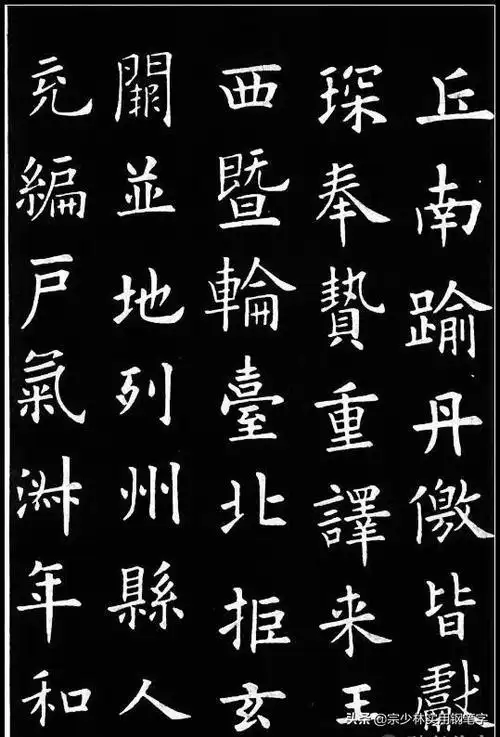 丘南踰丹儌皆獻
琛奉贄重譯来王
西暨輪臺北拒玄
闕並地列州縣人
充編戸氣淋年和
头条 @宗少林实用钢笔字